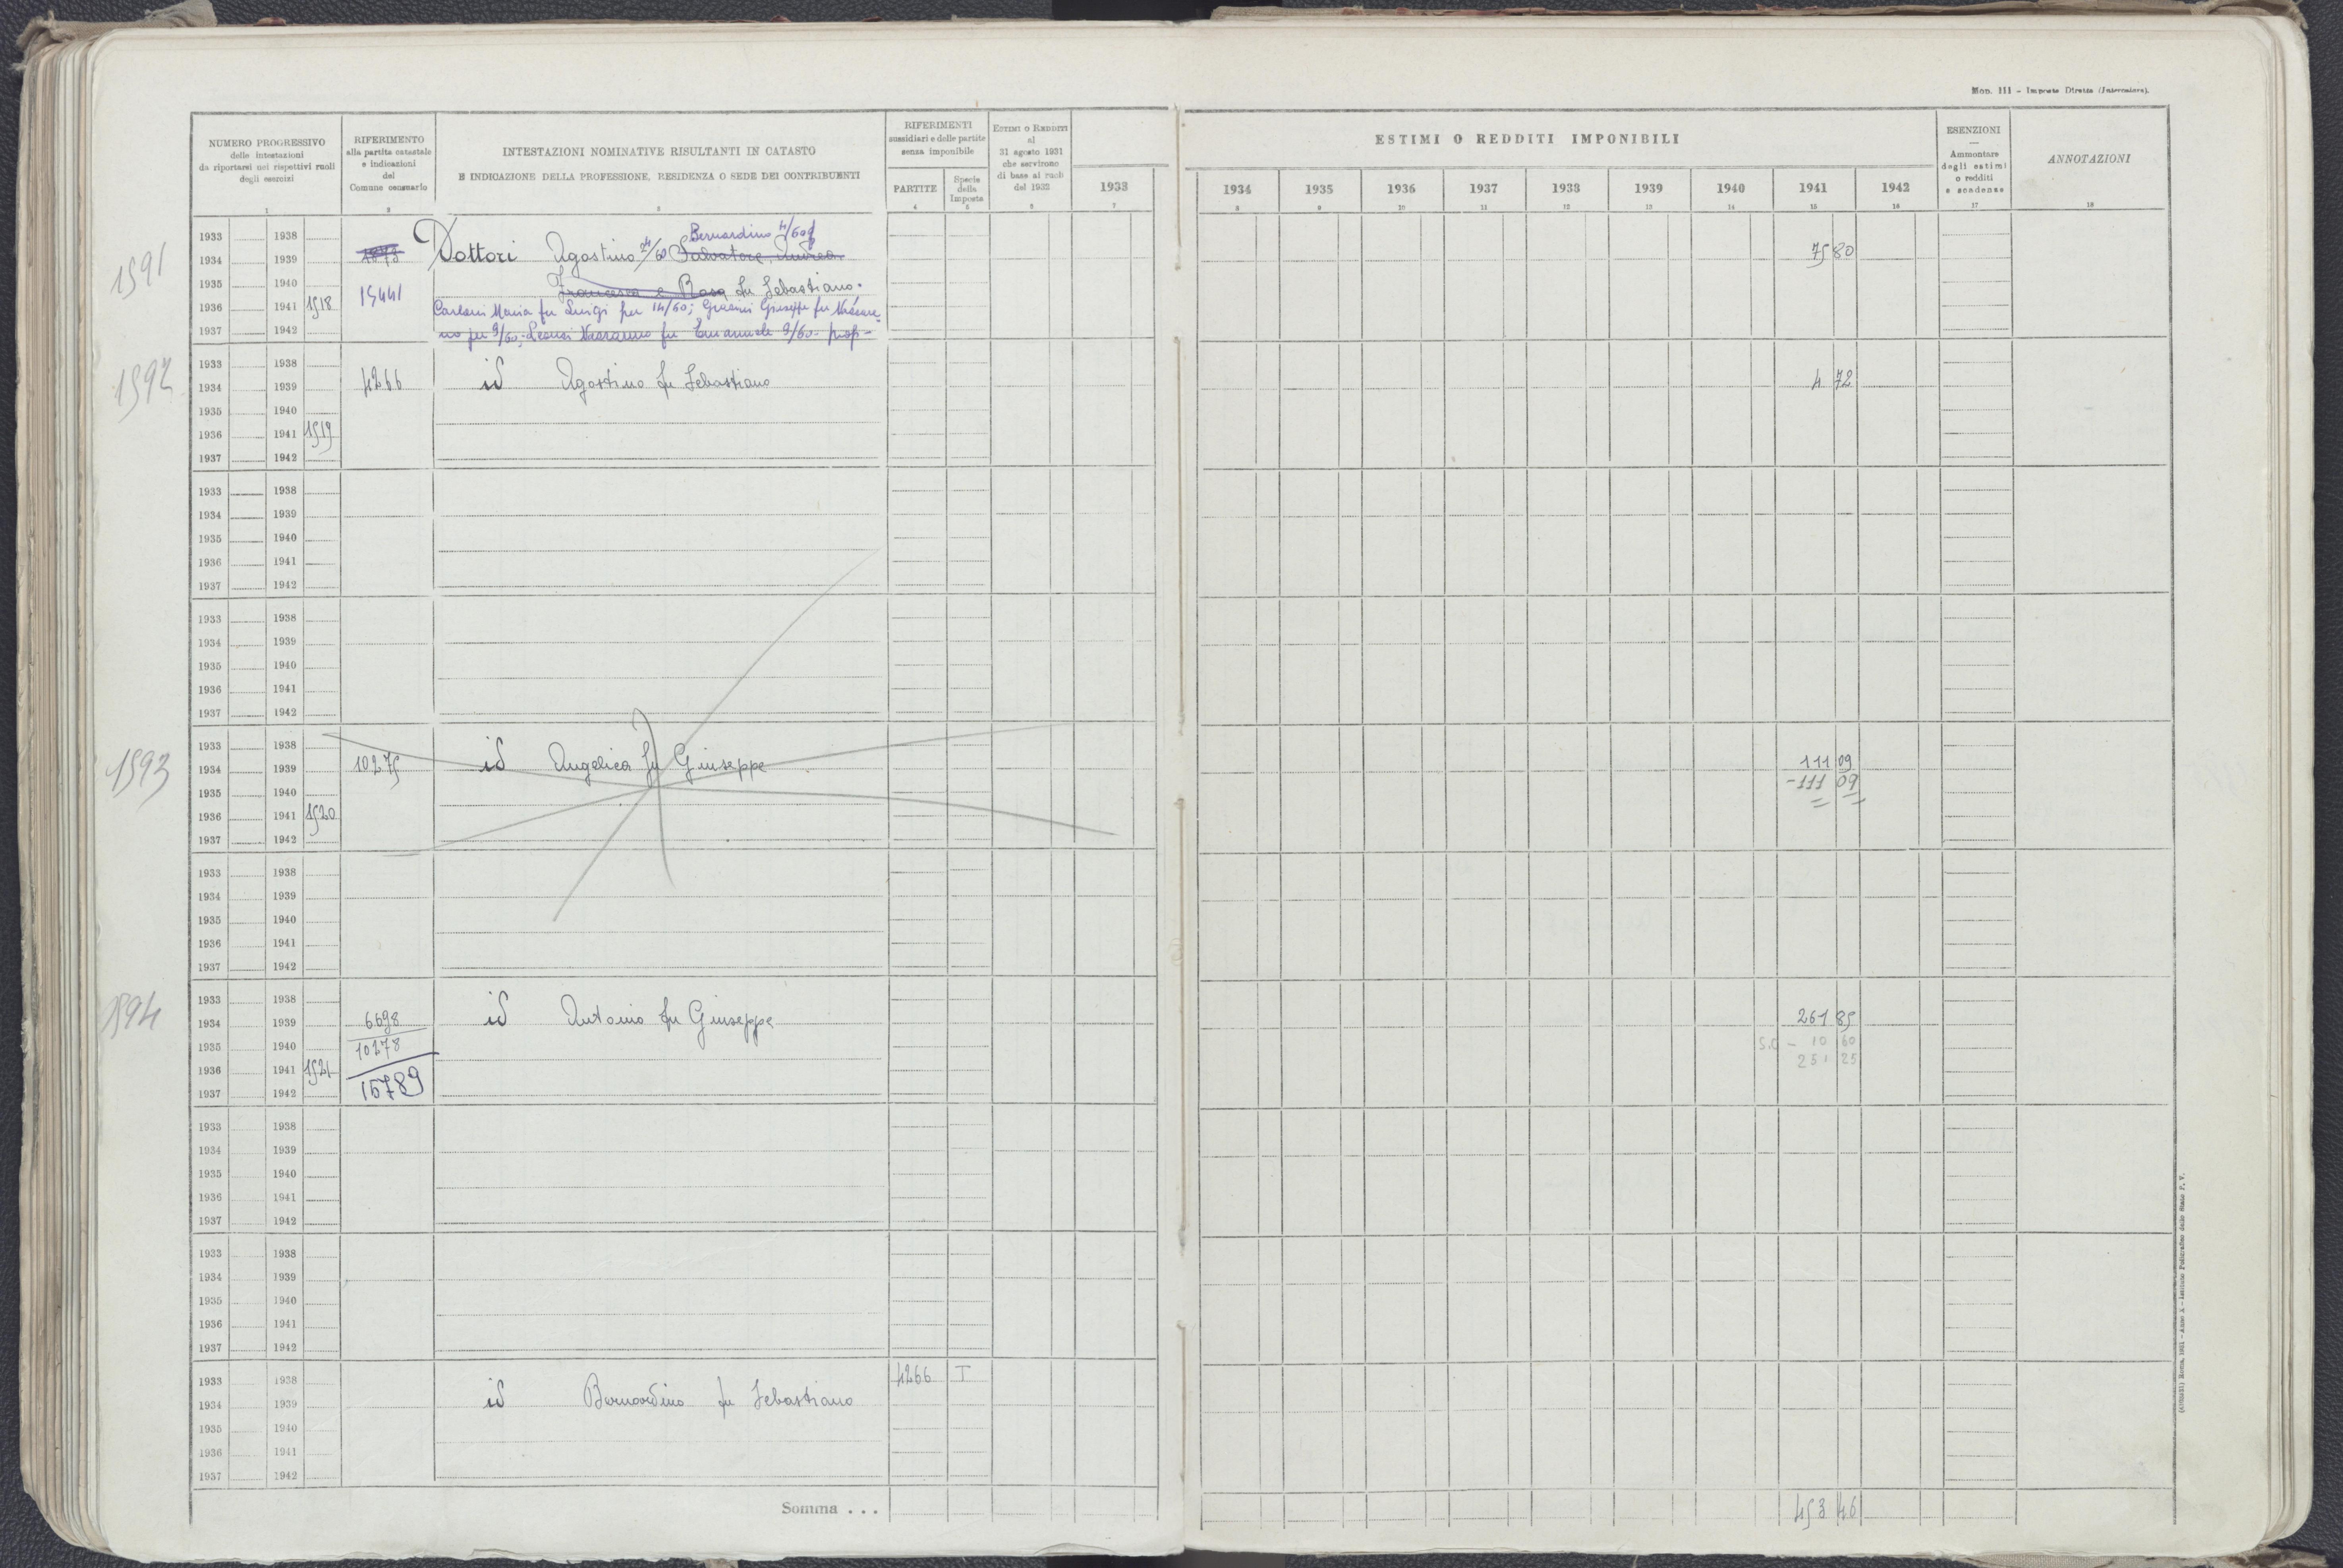 Mod. 111 - Imposte Dirette (Intercalare).
NUMERO PROGRESSIVO
delle intestazioni
da riportarsi nei rispettivi ruoli
degli esercizi
1
RIFERIMENTO
alla partita catastale
e indicazioni
del
Comune censuario
2
INTESTAZIONI NOMINATIVE RISULTANTI IN CATASTO
E INDICAZIONE DELLA PROFESSIONE, RESIDENZA O SEDE DEI CONTRIBUENTI
3
RIFERIMENTI
sussidiari e delle partite
senza imponibile
PARTITE
4
Specie
della
Imposta
5
ESTIMI O REDDITI
al
31 agosto 1931
che servirono
di base ai ruoli
del 1932
6
1933
7
ESTIMI O REDDITI IMPONIBILI
1934 1935 1936 1937 1938 1939 1940 1941 1942
8 9 10 11 12 13 14 15 16
ESENZIONI
Ammontare
degli estimi
o redditi
e scadenze
17
ANNOTAZIONI
18
1591
1933 1938 Bernardino 4/60
1934 1939 Dottori Agostino 24/60 Salvatore, Andrea 75 80
1935 1940 15441 Francesca e Rosa fu Sebastiano.
1936 1941 1518 Carloni Maria fu Luigi per 14/60; Giuseppe fu
1937 1942 per 9/60 - fu Emanuele 9/60 - prop -
1592
1933 1938
1934 1939 4266 id Agostino fu Sebastiano 4 72
1935 1940
1936 1941 1519
1937 1942
1933 1938
1934 1939
1935 1940
1936 1941
1937 1942
1933 1938
1934 1939
1935 1940
1936 1941
1937 1942
1593
1933 1938
1934 1939 10275 id Angelica fu Giuseppe 111 09
1935 1940 -111 09
1936 1941 1520
1937 1942
1933 1938
1934 1939
1935 1940
1936 1941
1937 1942
1594
1933 1938
1934 1939 6698 id Antonio fu Giuseppe 261 85
1935 1940 10278 - 10 60
1936 1941 1521 251 25
1937 1942 15789
1933 1938
1934 1939
1935 1940
1936 1941
1937 1942
1933 1938
1934 1939
1935 1940
1936 1941
1937 1942
1933 1938 4266 T
1934 1939 id Bernardino fu Sebastiano
1935 1940
1936 1941
1937 1942
Somma . . . 453 46